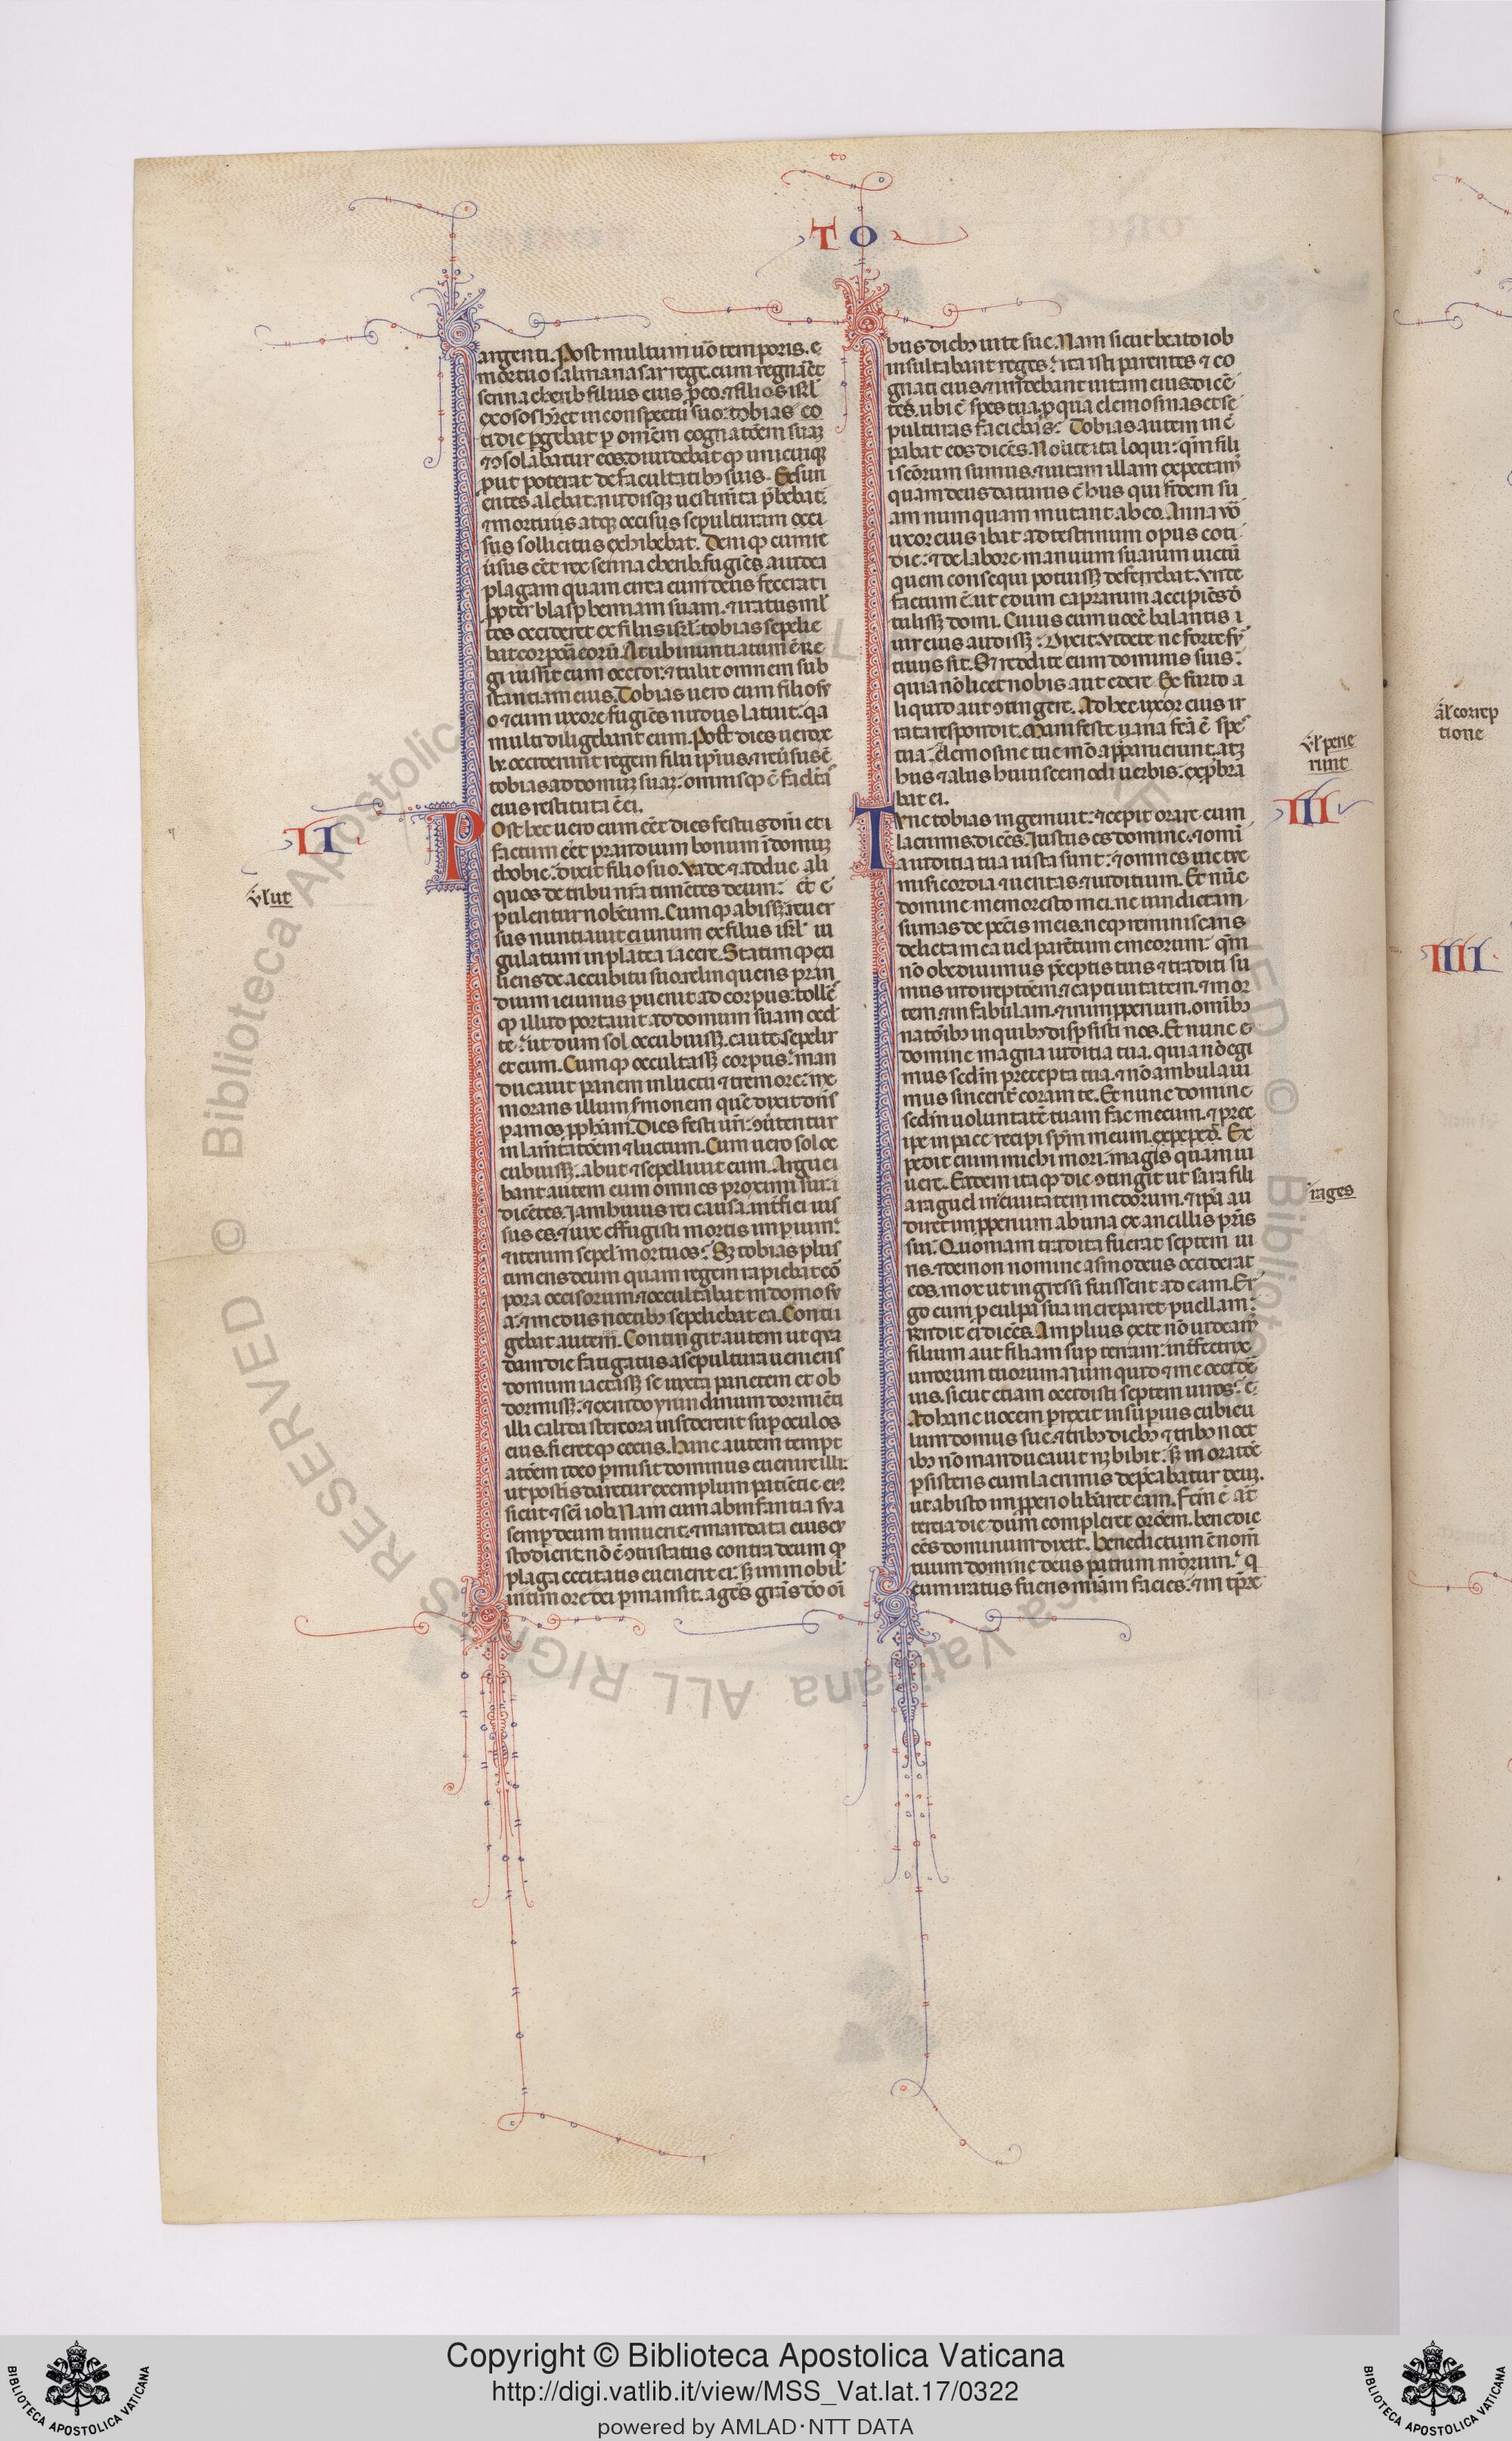 to
TO
argenti. Post multum u͞o temporis. e
mortuo salmanasar rege. cum regnar͞et
sennacherib filius eius p̱ eo. ⁊ filios isr͞l
exosos h͞ret in conspectu suo: tobias co
tidie p̱gebat p̱ om͞em cognato͞em suaꝫ
⁊ ꝯsolabatur eos. diuidebat qꝫ unicuiqꝫ
ꝓut poterat de facultatibꝫ suis. Esuri
entes alebat. nudisqꝫ uestim͞ta p̱bebat:
⁊ mortuis atqꝫ occisis sepulturam occi
sis sollicitus exhibebat. Deniqꝫ cum re
uersus e͞et rex sennacherib. fugie͞s a iudea
plagam quam circa eum deus fecerat i
ꝓpter blasphemiam suam. ⁊ iratus ml͞
tos occideret ex filiis isr͞l: tobias sepelie
bat corpora eorū. At ubi nuntiatum e͞ re
gi iussit eum occidi. ⁊ tulit omnem sub
stantiam eius. Tobias uero cum filio su
o ⁊ cum uxore fugie͞s nudus latuit: qa
multi diligebant eum. Post dies uero xl
v. occiderunt regem filii ip̄ius. ⁊ reu͞sus e͞
tobias ad domuꝫ suaꝫ: omnisqꝫ e͞ faclta͞s
eius restituta e͞ ei.
II
Post hec uero cum e͞et dies festus dn͞i et i
factum e͞et prandium bonum i͞ domuꝫ
thobie: dixit filio suo. Vade ⁊ adduc ali
quos de tribu nr͞a time͞tes deum: et e
pulentur nobcum. Cumqꝫ abiss͞ꝫ reuer
sus nuntiauit ei unum ex filiis isr͞l iu
gulatum in platea iacere. Statimqꝫ exi
liens de accubitu suo. relinquens pran
dium ieiunus p̱uenit ad corpus: tolle͞s
qꝫ illud portauit ad domum suam occl
te: ut dum sol occubuissꝫ. caute sepelir
et eum. Cumqꝫ occultassꝫ corpus: man
ducauit panem in luctu ⁊ tremore: me
morans illum s͞monem que͞ dixit dn͞s
p̱ amos ꝓph͞am: Dies festi ur͞i: ꝯu͞tentur
in lam͞tato͞em ⁊ luctum. Cum uero sol oc
cubuissꝫ: abiit ⁊ sepelliuit eum. Argue
bant autem eum omnes proximi sui:
dice͞tes: Iam huius rei causa int͞fici ius
sus es. ⁊ uix effugisti mortis imperium:
⁊ iterum sepel͞ mortuos: Sꝫ tobias plus
timens deum quam regem rapiebat co͞
pora occisorum ⁊ occultabat in domo su
a: ⁊ mediis noctibꝫ sepeliebat ea. Conti
gebat autem. Contingit autem ut qua
dam die fatigatus a sepultura ueniens
domum iactassꝫ se iuxta parietem et ob
dormissꝫ: ⁊ ex nido yrundinum dormie͞ti
illi calida stercora insiderent sup̱ oculos
eius. fieretqꝫ cecus. Hanc autem tempt
ato͞em ideo p̱misit dominus euenire illi:
ut post͞is daretur exemplum patie͞tie ei͞ꝰ
sicut ⁊ s͞ci iob. Nam cum ab infantia sua
semp̱ deum timuerit. ⁊ mandata eius cu
stodierit: no͞ e͞ ꝯtristatus contra deum qꝫ
plaga cecitatis euenerit ei: sꝫ immobil͞
in tim͞ore dei p̱mansit. age͞s gra͞s d͞o oi͞
bus diebꝫ uite sue. Nam sicut beato iob
insultabant reges: ita isti parentes ⁊ co
gnati eius. ⁊ irridebant uitam eius dice͞
tes. ubi e͞ spes tua. p̱ qua elemosinas et se
pulturas facieba͞s: Tobias autem inc͞
pabat eos dice͞s. Nolite ita loqui: q͞m fili
i sc͞orum sumus. ⁊ uitam illam expectam͞
quam deus daturus e͞ hiis qui fidem su
am numquam mutant ab eo. Anna u͞o
uxor eius ibat ad textrinum opus coti
die: ⁊ de labore manuum suarum uictu͞
quem consequi potuissꝫ deferrebat. Vnde
factum e͞. ut edum caprarum accipie͞s d͞
tulissꝫ domi. Cuius cum uoce͞ balantis i
uir eius audissꝫ: Dixit. Videte ne forte fu
tiuus sit. Et reddite eum dominis suis:
quia no͞ licet nobis aut edere. Ex furto a
liquid aut ꝯtingere. Ad hec uxor eius ir
rata respondit. Manifeste uana fc͞a e͞ spes
tua: elemosine tue mo͞ apparuerunt. atꝫ
hiis ⁊ aliis huiuscemodi uerbis: exp̱bra
bat ei.
III
Tunc tobias ingemuit: ⁊ cepit orare cum
lacrimis dice͞s. Iustus es domine. ⁊ omi͞
a iuditia tua iusta sunt: ⁊ omnes uie tue
misericordia ⁊ ueritas ⁊ iuditium. Et nu͞c
domine memor esto mei. ne uindictam
sumas de pecc͞is meis. neqꝫ reminiscaris
delicta mea uel pare͞tum e meorum: q͞m
no͞ obediuimus p̱ceptis tuis ⁊ traditi su
mus in direpto͞em. ⁊ captiuitatem. ⁊ mor
tem. ⁊ in fabulam. ⁊ in impperium. omnibꝫ
nato͞ibꝫ in quibꝫ disp̱sisti nos. Et nunc e
domine magna iuditia tua. quia no͞ egi
mus sed͞m precepta tua. ⁊ no͞ ambulaui
mus sincerit͞ coram te. Et nunc domine
sed͞m uoluntate͞ tuam fac mecum. ⁊ prec
ipe in pace recipi sp͞m meum. expepedꝫ. Ex
pedit enim michi mori. magis quam ui
uere. Eadem itaqꝫ die ꝯtingit ut sara fili
a raguel in ciuitatem medorum. ⁊ ip̄a au
diret impperium ab una ex ancillis pr͞is
sui. Quoniam tradita fuerat septem ui
ris. ⁊ demon nomine asmodeus occiderat
eos. mox ut ingressi fuissent ad eam. Er
go cum p̱ culpa sua increparet puellam:
Rn͞dit ei dice͞s. Amplius ex te no͞ uideam͞
filium aut filiam sup̱ terram: int͞fectrix
uirorum tuorum. Num quid ⁊ me occide͞
uis. sicut etiam occidisti septem uiros: e͞
Ad hanc uocem p̱rexit in sup̱ius cubicu
lum domus sue. ⁊ tribꝫ diebꝫ ⁊ tribꝫ noct
ibꝫ no͞ manducauit nꝫ bibit: sꝫ in orato͞e
p̱sistens cum lacrimis dep̱cabatur deuꝫ.
ut ab isto impperio lib͞aret eam. Fc͞m e͞ at͞
tertia die dum compleret oro͞em. benedic
e͞s dominum dixit. Benedictum e͞ nom͞
tuum domine deus patrum nr͞orum: q
cum iratus fueris mi͞am facies: ⁊ in tp̄re
u͞l ut
u͞l pene
runt
rages
a͞l correp
tione
IIII
Copyright © Biblioteca Apostolica Vaticana
http://digi.vatlib.it/view/MSS_Vat.lat.17/0322
powered by AMLAD·NTT DATA
BIBLIOTECA APOSTOLICA VATICANA
BIBLIOTECA APOSTOLICA VATICANA